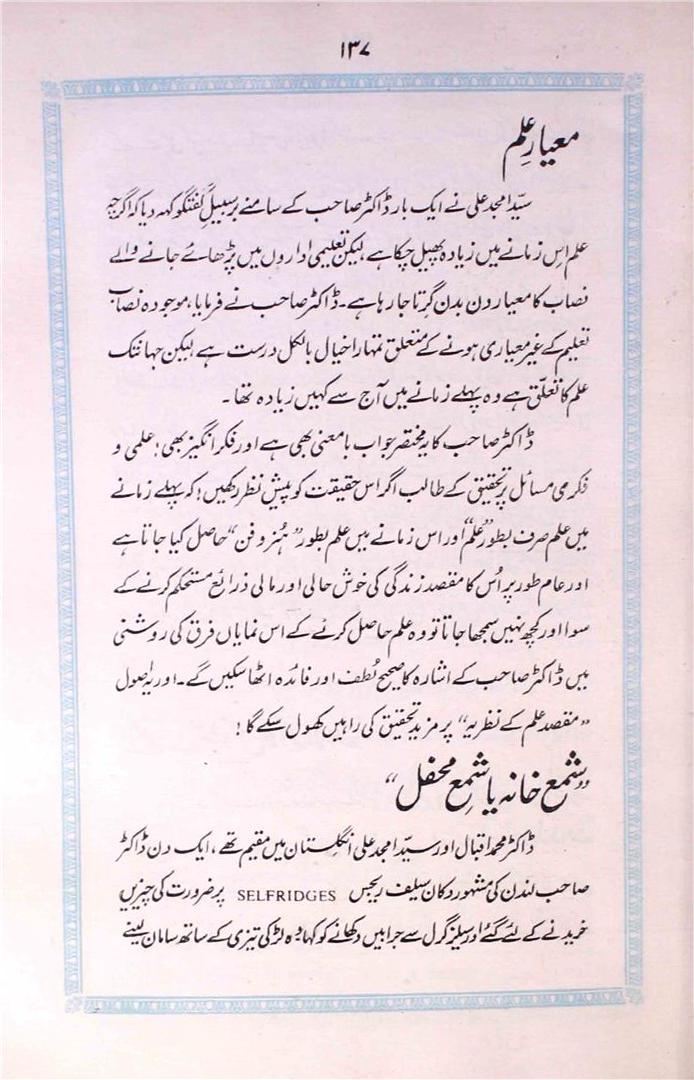 ۱۳۷
معیارِ علم
سیّد امجد علی نے ایک بار ڈاکٹر صاحب کے سامنے برسبیلِ گفتگو کہہ دیا کہ اگرچہ
علم اس زمانے میں زیادہ پھیل چکا ہے لیکن تعلیمی اداروں میں پڑھائے جانے والے
نصاب کا معیار دن بدن گرتا جا رہا ہے۔ ڈاکٹر صاحب نے فرمایا، موجودہ نصاب
تعلیم کے غیر معیاری ہونے کے متعلق تمہارا خیال بالکل درست ہے لیکن جہانتک
علم کا تعلّق ہے وہ پہلے زمانے میں آج سے کہیں زیادہ تھا۔
ڈاکٹر صاحب کا یہ مختصر جواب بامعنی بھی ہے اور فکر انگیز بھی! علمی و
فکری مسائل پر تحقیق کے طالب اگر اس حقیقت کو پیش نظر رکھیں! کہ پہلے زمانے
میں علم صرف بطور "علم" اور اس زمانے میں علم بطور "ہنر و فن" حاصل کیا جاتا ہے
اور عام طور پر اُس کا مقصد زندگی کی خوش حالی اور مالی ذرائع مستحکم کرنے کے
سوا اور کچھ نہیں سمجھا جاتا تو وہ علم حاصل کرنے کے اس نمایاں فرق کی روشنی
میں ڈاکٹر صاحب کے اشارہ کا صحیح لُطف اور فائدہ اٹھا سکیں گے۔ اور یہ اصول
"مقصد علم کے نظریہ" پر مزید تحقیق کی راہیں کھول سکے گا!
"شمع خانہ یا شمعِ محفل"
ڈاکٹر محمد اقبال اور سیّد امجد علی انگلستان میں مقیم تھے، ایک دن ڈاکٹر
صاحب لندن کی مشہور دکان سیلف ریجس SELFRIDGES پر ضرورت کی چیزیں
خریدنے کے لئے گئے اور سیلز گرل سے جرابیں دکھانے کو کہا وہ لڑکی تیزی کے ساتھ سامان لینے